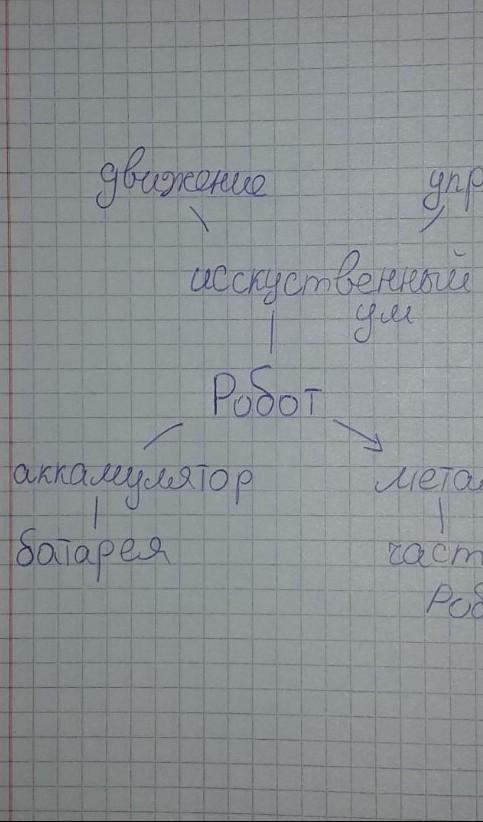 движение упр
исскуственный
ум
Робот
аккамулятор метал
батарея част
Роб